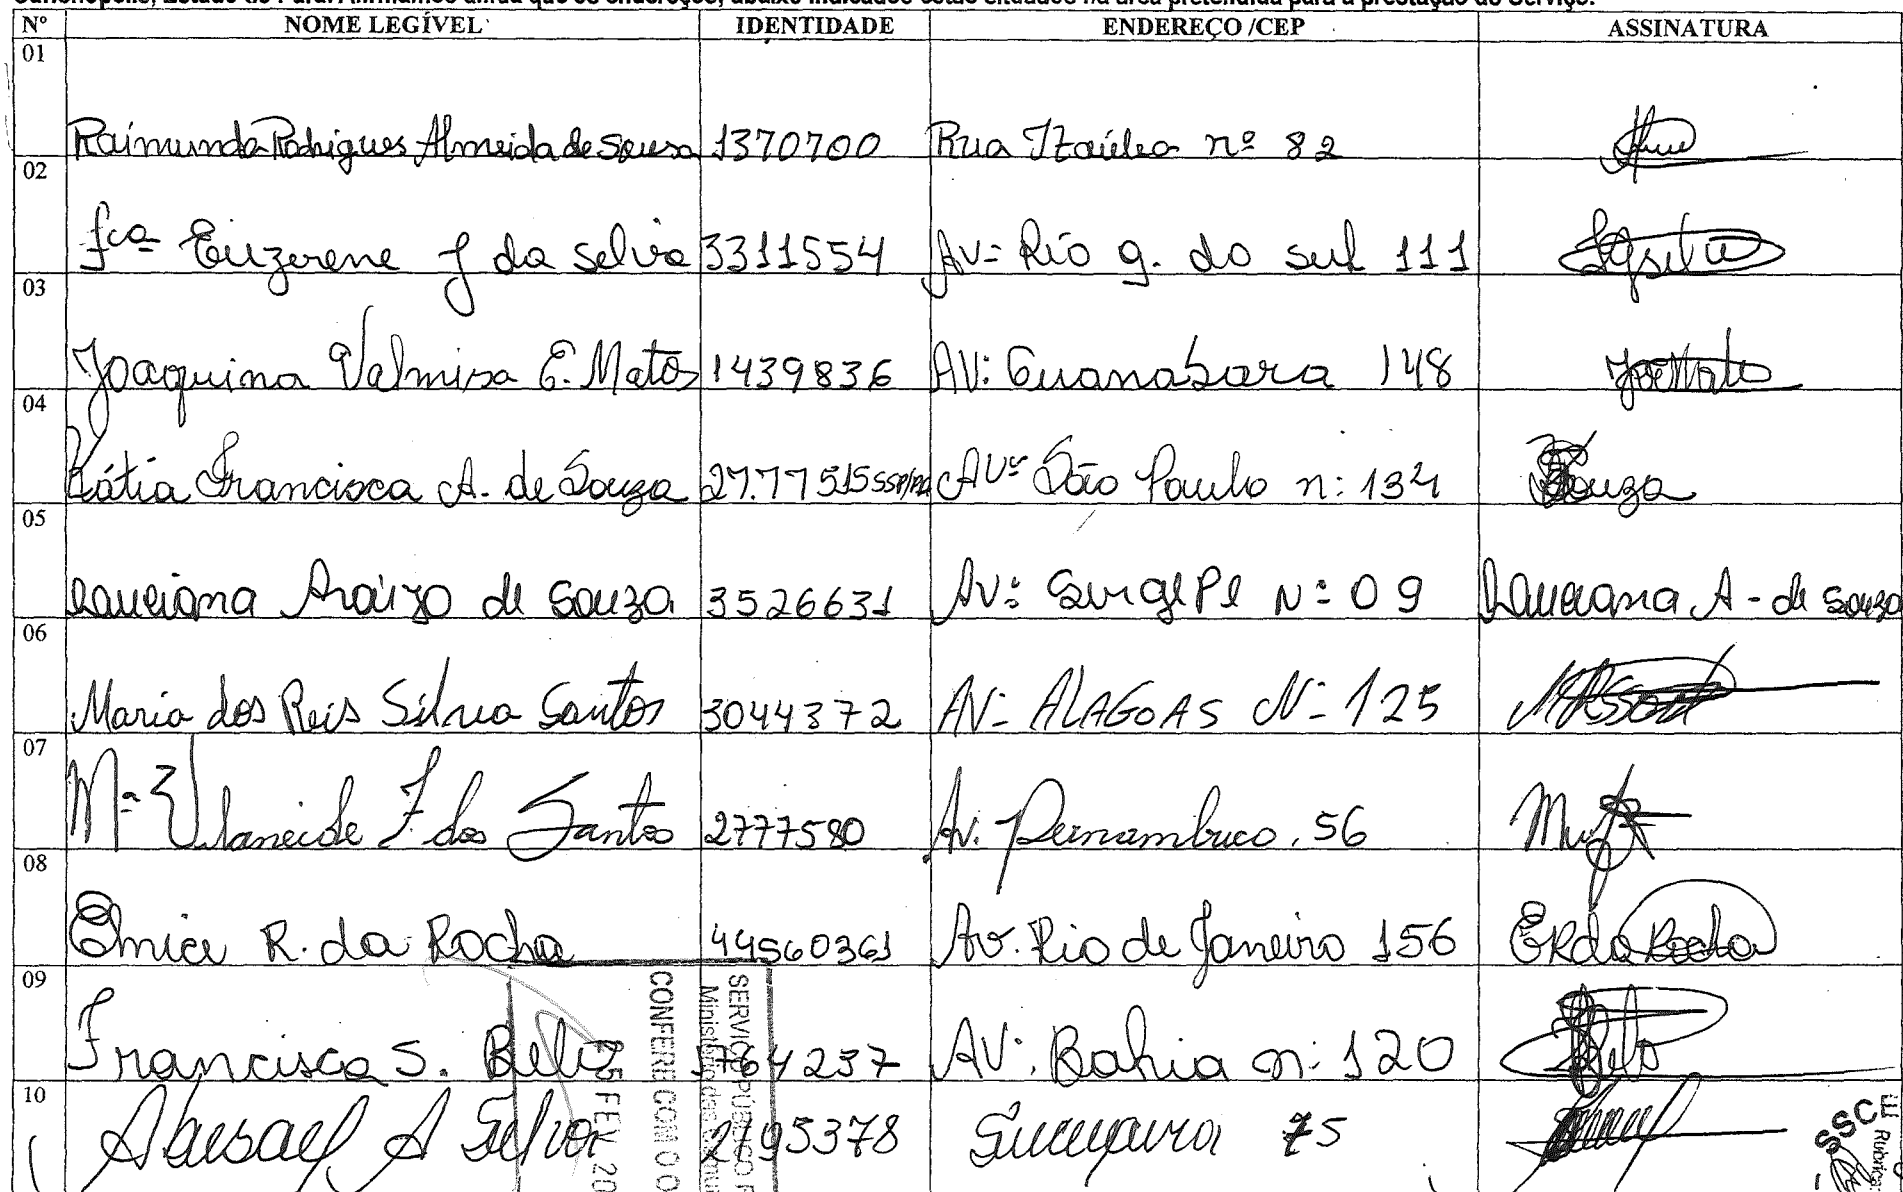 Nº NOME LEGÍVEL IDENTIDADE ENDEREÇO /CEP ASSINATURA
01 Raimunda Rodrigues Almeida de Sousa 1370700 Rua Itaúba nº 82
02 Fca Euzerene f da selvia 3311554 AV= Rio g. do sul 111
03 Joaquina Valmisa E. Matos 1439836 AV: Guanabara 148
04 Kátia Francisca A. de Souza 27.77515 SSP/PA AVe São Paulo n: 134 Souza
05 Lauciana Araújo de Souza 3526631 Av: Sergipe Nº 09 Lauciana A - de Souza
06 Maria dos Reis Silva Santos 3044372 AV- ALAGOAS N- 125
07 Mª F. dos Santos 2777580 Av. Pernambuco, 56
08 R. da Rocha 44560361 Av. Rio de Janeiro 156 ERda Rocha
09 Francisca S. Beliz 1764237 AV: Bahia n: 120
10 A Silva 2195378 75
SERVIÇO PÚBLICO F
CONFERE COM O O
FEV 20
SSCE
Rubrica: